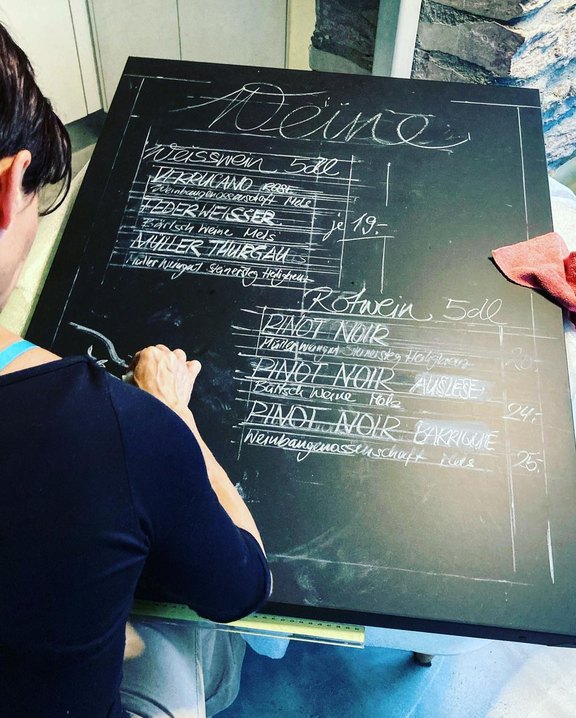 Weine
Weisswein 5dl
VERRUCANO ROSE
Weinbaugenossenschaft Mels
FEDERWEISSER
Bärtsch Weine Mels
MÜLLER THURGAU
Müller Weingut Steinersteg Heiligkreuz
je 19.-
Rotwein 5dl
PINOT NOIR
Müller Weingut Steinersteg Heiligkreuz
PINOT NOIR AUSLESE
Bärtsch Weine Mels 24.-
PINOT NOIR BARRIQUE
Weinbaugenossenschaft Mels 25.-